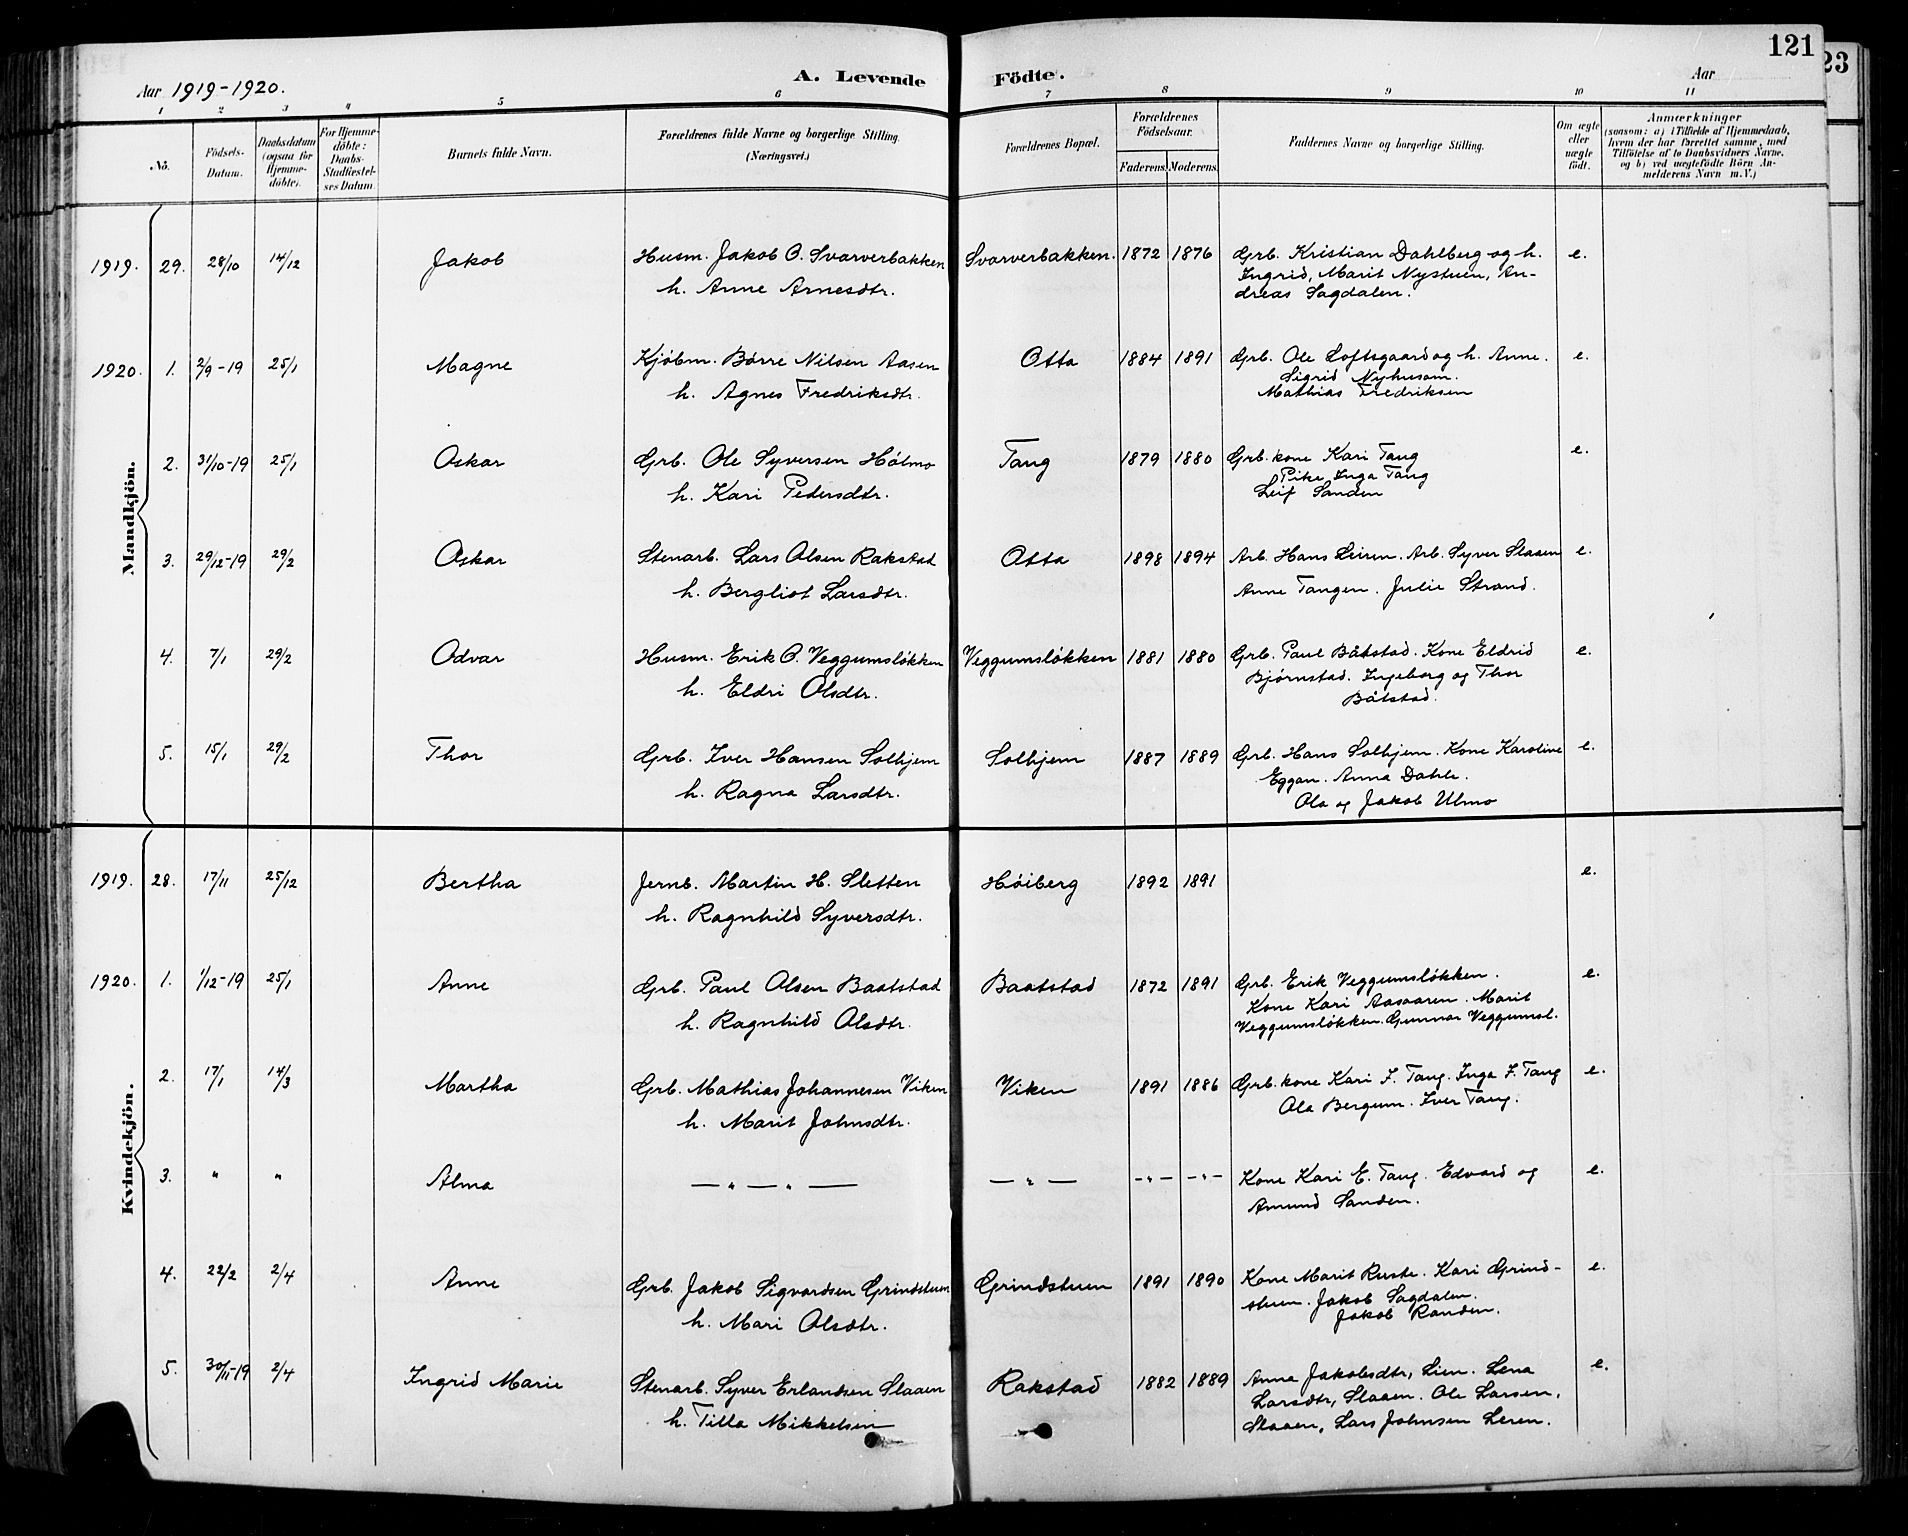 121
23
Aar 1919-1920.
A. Levende Födte.
Aar
1 2 3 4 5 6 7 8 9 10 11
No.
Födsels-Datum.
Daabsdatum (ogsaa for Hjemmedöbte).
For Hjemmedöbte: Daabs-Stadfæstelses Datum.
Barnets fulde Navn.
Forældrenes fulde Navne og borgerlige Stilling. (Næringsvei.)
Forældrenes Bopæl.
Forældrenes Födselsaar.
Faderens. Moderens.
Faddernes Navne og borgerlige Stilling.
Om ægte eller uægte födt.
Anmærkninger
(saasom: a) i Tilfælde af Hjemmedaab, hvem der har forrettet samme, med Tilföielse af to Daabsvidners Navne, og b) ved uægtefödte Börn Anmelderens Navn m. V.)
Mandkjön.
1919. 29. 28/10 14/12 Jakob Husm. Jakob O. Svarverbakken Svarverbakken. 1872 1876 Grb. Kristian Dahlberg og h. e.
h. Anne Arnesdtr. Ingrid, Marit Nystuen, An-
dreas Sagdalen.
1920. 1. 2/9-19 25/1 Magne Kjöbm. Börre Nilsen Aasen Otta 1884 1891 Grb. Ole Loftsgaard og h. Anne. e.
h. Agnes Fredriksdtr. Sigrid Nyhusom.
Mathias Fredriksen
2. 31/10-19 25/1 Oskar Grb. Ole Syversen Hölmo Tang 1879 1880 Grb. kone Kari Tang e.
h. Kari Pedersdtr. Pike Inga Tang
Leif Sanden
3. 29/12-19 29/2 Oskar Stenarb. Lars Olsen Rakstad Otta 1898 1894 Arb. Hans Leiren. Arb. Syver Slaaen e.
h. Bergliot Larsdtr. Anne Tangen. Julie Strand.
4. 7/1 29/2 Odvar Husm. Erik O. Veggumslökken Veggumslökken 1881 1880 Grb. Paul Båtstad. Kone Eldrid e.
h. Eldri Olsdtr. Bjørnstad. Ingeborg og Thor
Båtstad.
5. 15/1 29/2 Thor Grb. Iver Hansen Solhjem Solhjem 1887 1889 Grb. Hans Solhjem. Kone Karoline e.
h. Ragna Larsdtr. Eggan. Anna Dahle.
Ola og Jakob Ulmo
Kvindekjön.
1919. 28. 17/11 25/12 Bertha Jernb. Martin H. Sletten Höiberg 1892 1891 e.
h. Ragnhild Syversdtr.
1920. 1. 1/12-19 25/1 Anne Grb. Paul Olsen Baatstad Baatstad 1872 1891 Grb. Erik Veggumslökken. e.
h. Ragnhild Olsdtr. Kone Kari Aasaaren. Marit
Veggumslökken. Gunnar Veggumsl.
2. 17/1 14/3 Martha Grb. Mathias Johannesen Viken Viken 1891 1886 Grb. kone Kari I. Tang. Inga I. Tang e.
h. Marit Johnsdtr. Ola Bergum. Iver Tang.
3. " " Alma — " — " — — " — - " - - " - Kone Kari E. Tang. Edvard og e.
Amund Sanden.
4. 22/2 2/4 Anne Grb. Jakob Sigvardsen Grindstuen Grindstuen 1891 1890 Kone Marit Ruste. Kari Grind- e.
h. Mari Olsdtr. stuen. Jakob Sagdalen.
Jakob Randen.
5. 30/11-19 2/4 Ingrid Marie Stenarb. Syver Erlandsen Slaaen Rakstad 1882 1889 Anna Jakobsdtr, Lien. Lena e.
h. Tilla Mikkelsen Larsdtr, Slaaen. Ole Larsen,
Slaaen, Lars Johnsen Leren.